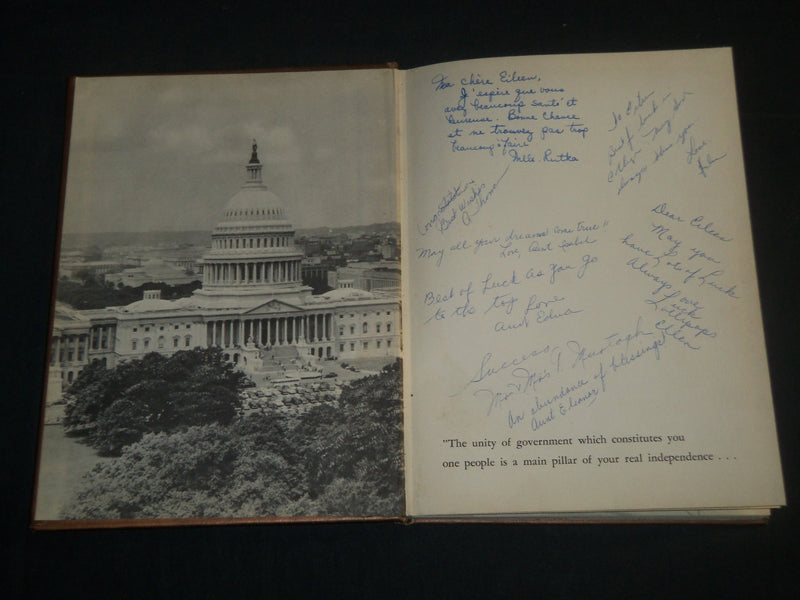 Ma chère Eileen,
J'espère que vous
avez beaucoup santé et
heureuse. Bonne Chance
et ne trouvez pas trop
beaucoup à faire
Mlle. Rutka
To Eileen
Best of luck in
College. May God
always bless you
Love
Congratulations
Best Wishes
"May all your dreams come true"
Love, Aunt Isabel
Dear Eileen
May you
have lots of Luck
Always Luck
Love
Lollipops
Ellen
Best of Luck As you go
to the top Love
Aunt Edna
Success,
Mr & Mrs T.
An abundance of blessings!
Aunt Eleanor
"The unity of government which constitutes you
one people is a main pillar of your real independence . . .